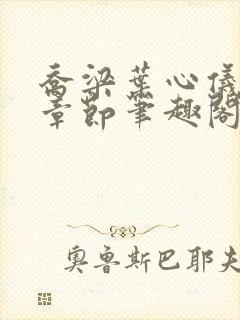 乔梁叶心仪
章节笔趣阁
奥鲁斯巴耶夫